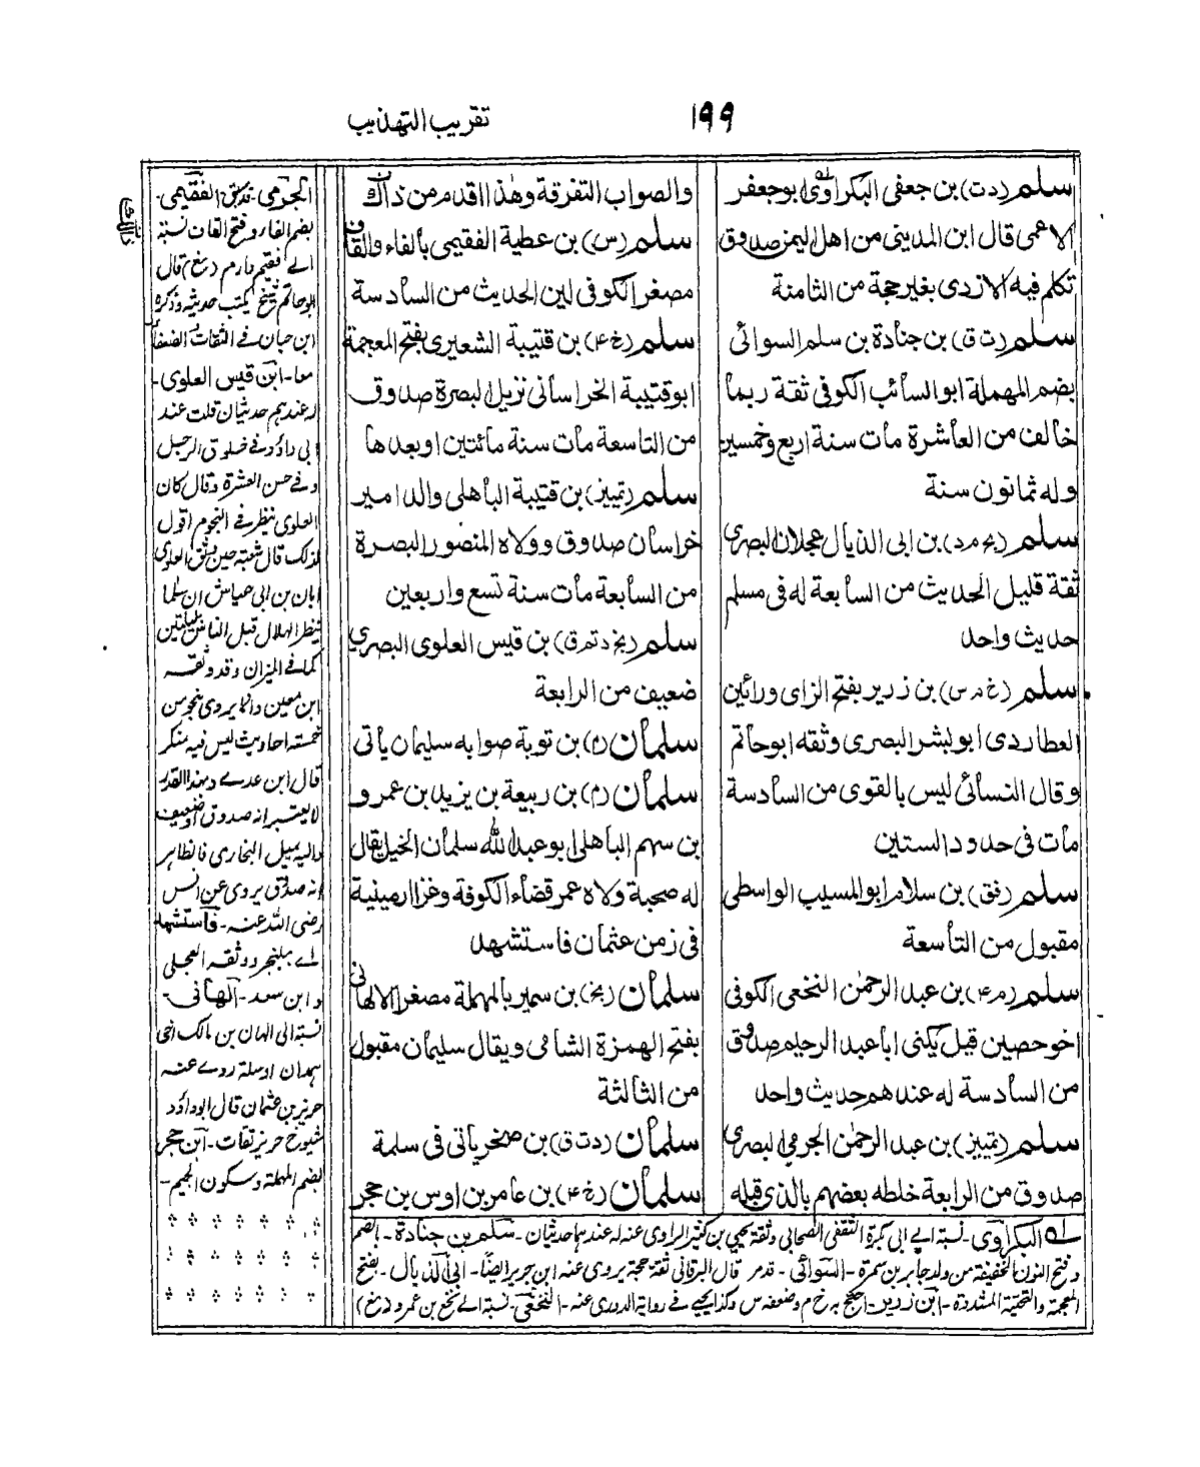 ١٩٩
تقريب التهذيب
سلم (دت) بن جعفى البكراوى ابو جعفر
الاعمى قال ابن المدينى من اهل اليمن صدوق
تكلم فيه الازدى بغير حجة من الثامنة
سلم (ت ق) بن جنادة بن سلم السوائى
بضم المهملة ابو السائب الكوفى ثقة ربما
خالف من العاشرة مات سنة اربع وخمسين
وله ثمانون سنة
سلم (بخ م د) بن ابى الذيال عجلان البصرى
ثقة قليل الحديث من السابعة له فى مسلم
حديث واحد
سلم (خ م س) بن زرير بفتح الزاى ورائين
العطاردى ابو لبشر البصرى وثقه ابو حاتم
وقال النسائى ليس بالقوى من السادسة
مات فى حدود الستين
سلم (فق) بن سلام ابو المسيب الواسطى
مقبول من التاسعة
سلم (م ۴) بن عبد الرحمٰن النخعى الكوفى
اخو حصين قيل يكنى ابا عبد الرحيم صدوق
من السادسة له عندهم حديث واحد
سلم (تمييز) بن عبد الرحمٰن الجرمى البصرى
صدوق من الرابعة خلطه بعضهم بالذى قبله
والصواب التفرقة وهٰذا اقدم من ذاك
سلم (س) بن عطية الفقيمى بالفاء والقاف
مصغر الكوفى لين الحديث من السادسة
سلم (خ ۴) بن قتيبة الشعيرى بفتح المعجمة
ابو قتيبة الخراسانى نزيل البصرة صدوق
من التاسعة مات سنة مائتين او بعدها
سلم (تمييز) بن قتيبة الباهلى والد امير
خراسان صدوق وولاه المنصور البصرة
من السابعة مات سنة تسع واربعين
سلم (بخ د تم ق) بن قيس العلوى البصرى
ضعيف من الرابعة
سلمان (م) بن توبة صوابه سليمان ياتى
سلمان (م) بن ربيعة بن يزيد بن عمرو
بن سهم الباهلى ابو عبد الله سلمان الخيل يقال
له صحبة ولاه عمر قضاء الكوفة وغزا ارمينية
فى زمن عثمان فاستشهد
سلمان (بخ) بن سمير بالمهملة مصغر الالهانى
بفتح الهمزة الشامى ويقال سليمان مقبول
من الثالثة
سلمان (د ت ق) بن صخر ياتى فى سلمة
سلمان (خ ۴) بن عامر بن اوس بن حجر
الجرمى - الفقيمى -
بضم الفاء وفتح القاف نسبة
الى فقيم دارم (مغ) قال
ابو حاتم شيخ يكتب حديثه وذكره
ابن حبان فى الثقات والضعفاء
معا - ابن قيس العلوى -
له عندهم حديثان قلت عند
ابى داود فى خلوق الرجل
وفى حسن العشرة وقال كان
العلوى ينظر فى النجوم اقول
لذلك قال شعبة حين وثق العلوى
ابان بن ابى عياش ان سلما
ينظر الهلال قبل الناس بليلتين
كما فى الميزان وقد وثقه
ابن معين وانما يروى نحو من
خمسة احاديث ليس فيه منكر
قال ابن عدى وبهذا القدر
لا يعتبر انه صدوق او ضعيف
واليه يميل البخارى فالظاهر
انه صدوق يروى عن انس
رضى الله عنه - فاستشهد
اى ببلنجر ووثقه العجلى
وابن سعد - الهانى -
نسبة الى الهان بن مالك اخى
همدان اوسلة روى عنه
حريز بن عثمان قال ابو داود
شيوخ حريز ثقات - ابن حجر
بضم المهملة وسكون الجيم -
له البكراوى - نسبة الى ابى بكرة الثقفى الصحابى وثقه يحيى بن كثير الراوى عنه له عندهما حديثان - سلم بن جنادة - بضم
وفتح النون الخفيفة من ولد جابر بن سمرة - السوائى - قال البرقانى ثقة حجة يروى عنه ابن جرير ايضًا - ابى الذيال - بفتح
المعجمة والتحتية المشددة - ابن زرير - احتج به خ م وضعفه س وكذا يحيى فى رواية الدورى عنه - النخعى - نسبة الى نخع بن عمرو (مغ)